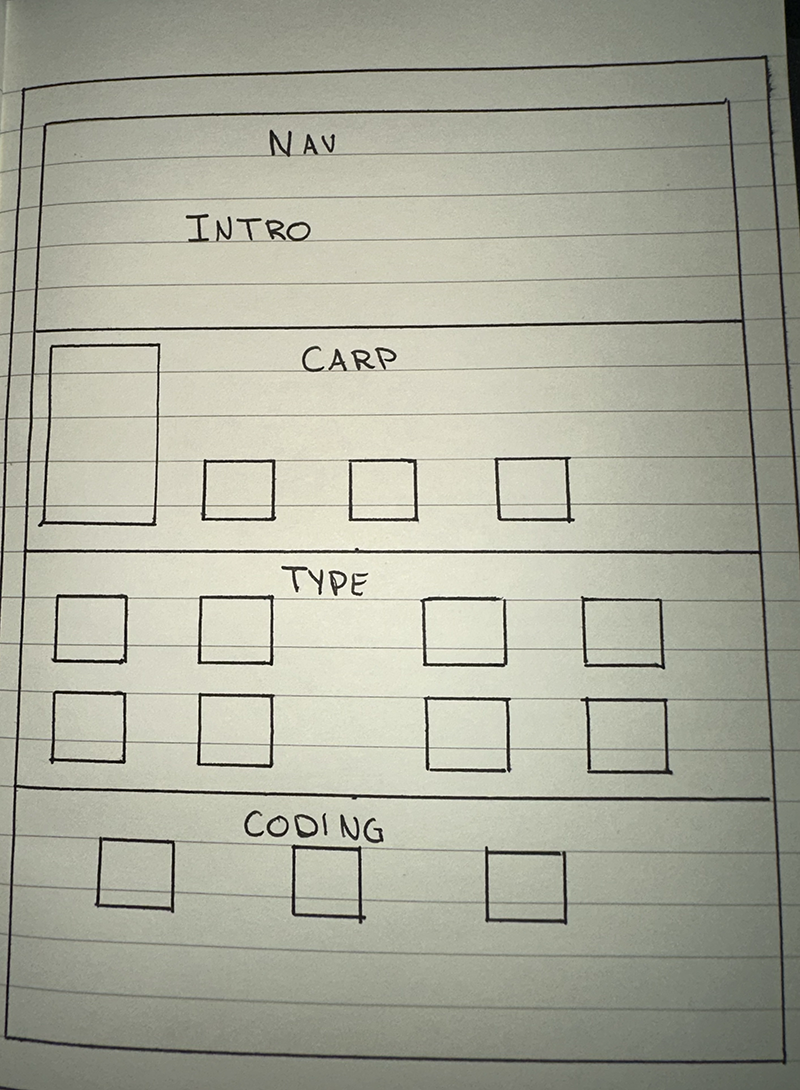 NAV
INTRO
CARP
TYPE
CODING